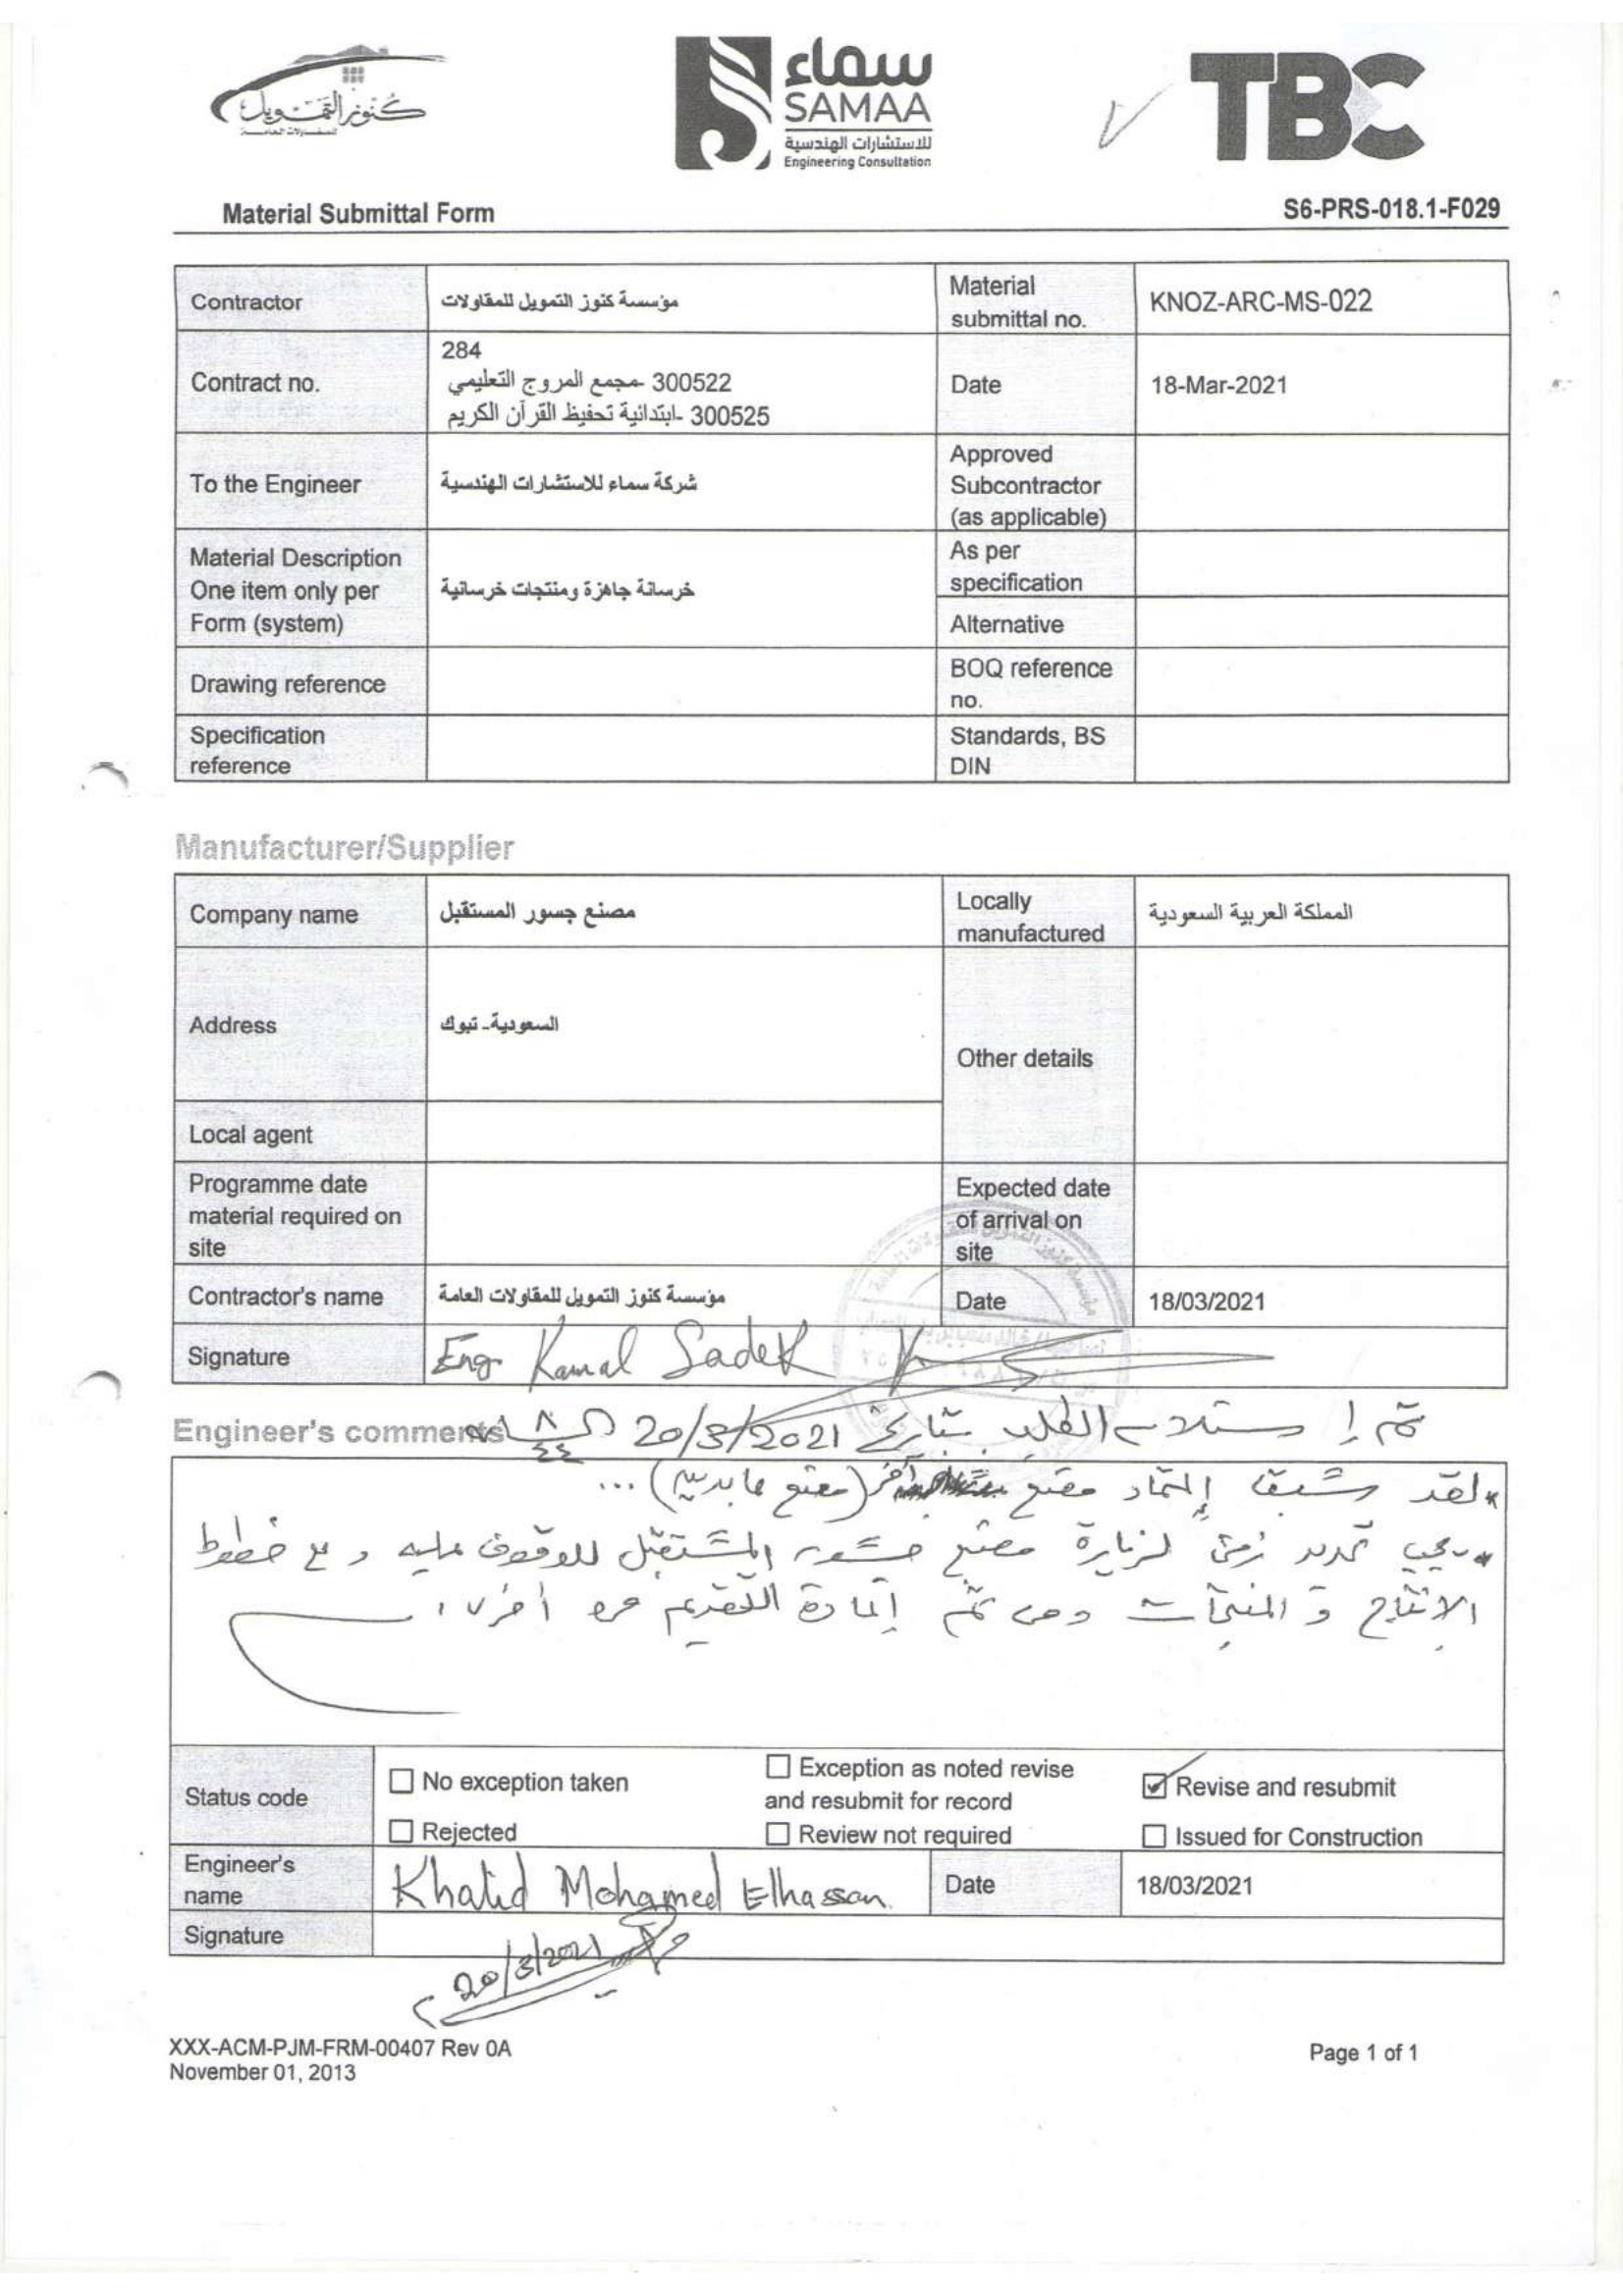 كنوز التمويل
للمقاولات العامة
سماء
SAMAA
للاستشارات الهندسية
Engineering Consultation
TBC
Material Submittal Form
S6-PRS-018.1-F029
Contractor
مؤسسة كنوز التمويل للمقاولات
Material submittal no.
KNOZ-ARC-MS-022
Contract no.
284
300522 -مجمع المروج التعليمي
300525 -ابتدائية تحفيظ القرآن الكريم
Date
18-Mar-2021
To the Engineer
شركة سماء للاستشارات الهندسية
Approved
Subcontractor
(as applicable)
Material Description
One item only per
Form (system)
خرسانة جاهزة ومنتجات خرسانية
As per
specification
Alternative
Drawing reference
BOQ reference
no.
Specification
reference
Standards, BS
DIN
Manufacturer/Supplier
Company name
مصنع جسور المستقبل
Locally
manufactured
المملكة العربية السعودية
Address
السعودية- تبوك
Other details
Local agent
Programme date
material required on
site
Expected date
of arrival on
site
Contractor's name
مؤسسة كنوز التمويل للمقاولات العامة
Date
18/03/2021
Signature
Eng Kamal Sadek
Engineer's comments
تم إستلام الطلب بتاريخ 20/3/2021
* لقد سبق إعتماد مصنع آخر (مصنع ...)
* يجب تحديد زمن لزيارة مصنع جسور المستقبل للوقوف عليه و مع خطوط
الانتاج و المنتجات ومن ثم إعادة التقديم مرة أخرى.
Status code
No exception taken
Exception as noted revise
and resubmit for record
Revise and resubmit
Rejected
Review not required
Issued for Construction
Engineer's
name
Khalid Mohamed Elhassan
Date
18/03/2021
Signature
20/3/2021
XXX-ACM-PJM-FRM-00407 Rev 0A
November 01, 2013
Page 1 of 1